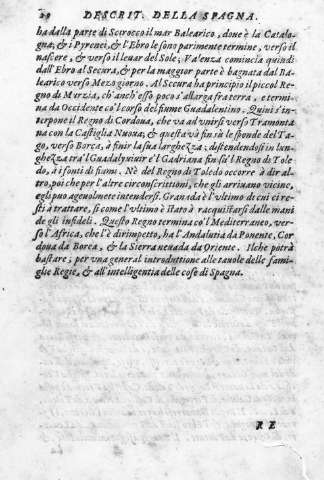 20 DESCRIT. DELLA SPAGNA.
ha dalla parte di Scirocco il mar Balearico, doue è la Catalo-
gna; & i Pyrenei, & l'Ebro le sono parimente termine, verso il
nascere, & verso il leuar del Sole; Valenza comincia quindi
dall'Ebro al Secura, & per la maggior parte è bagnata dal Ba-
learico verso Mezogiorno. Al Secura hà principio il piccol Re-
gno di Murzia, ch'anch'esso poco s'allarga fra terra, e termi-
na da Occidente co'l corso del fiume Guadalentino. Quiui s'in-
terpone il Regno di Cordoua, che va ad vnirsi verso Tramonta
na con la Castiglia Nuoua; & questa và fin sù le sponde del Ta-
go, verso Borea, à finir la sua larghezza; distendendosi in lun-
ghezza tra'l Guadalquiuir e'l Gadiana fin sù'l Regno di Tole
do, à i fonti di fiumi. Nè del Regno di Toledo occorre à dir al-
tro, poi che per l'altre circonscrittioni, che gli arriuano vicine,
egli puo ageuolmente intendersi. Granada è l'vltimo di cui ci re-
sti à trattare, si come l'vltimo è stato à racquistarsi dalle mani
de gli infedeli. Questo Regno termina co'l Mediterraneo, ver-
so l'Africa, che l'è dirimpetto, ha l'Andalutia da Ponente, Cor
doua da Borea, & la Sierra neuada da Oriente. Ilche potrà
bastare; per vna general introduttione alle tauole delle fami-
glie Regie, & all'intelligentia delle cose di Spagna.
RE